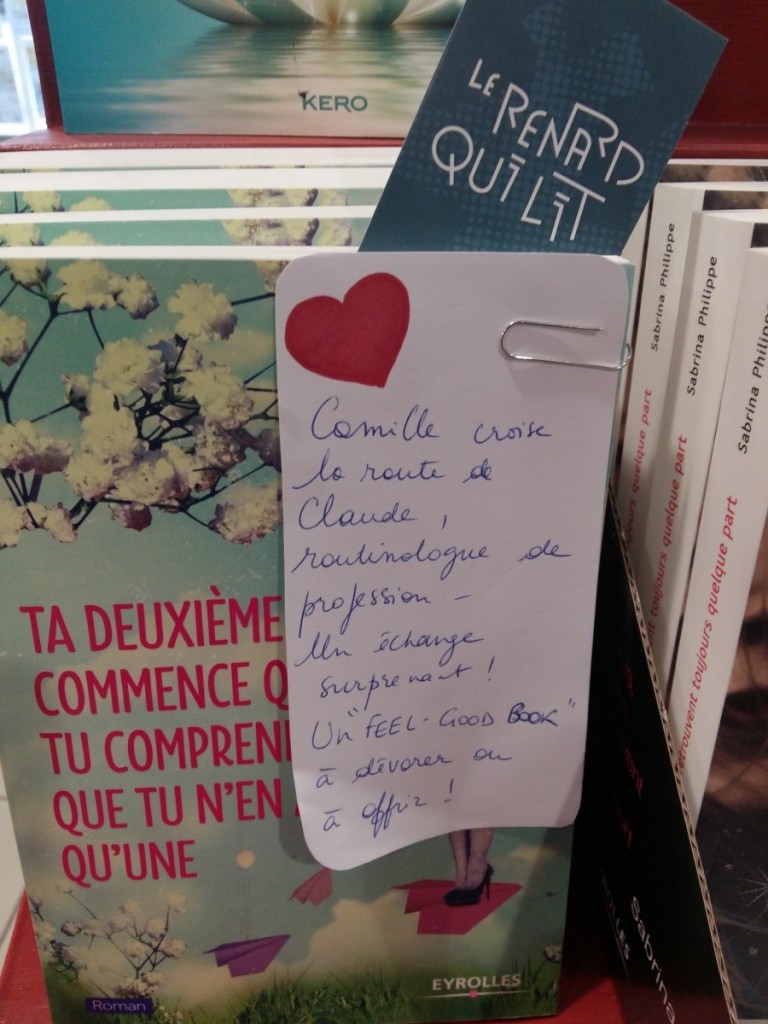 KERO
LE RENARD
QUI LIT
Camille croise
la route de
Claude,
routinologue de
profession -
Un échange
surprenant !
Un "FEEL-GOOD BOOK"
à dévorer ou
à offrir !
TA DEUXIÈME
COMMENCE Q
TU COMPREN
QUE TU N'EN A
QU'UNE
Roman
EYROLLES
Sabrina Philippe
ouvent toujours quelque part
Sabrina Philippe
ent toujours quelque part
Sabrina Philippe
etrouvent toujours quelque part
Sabrina